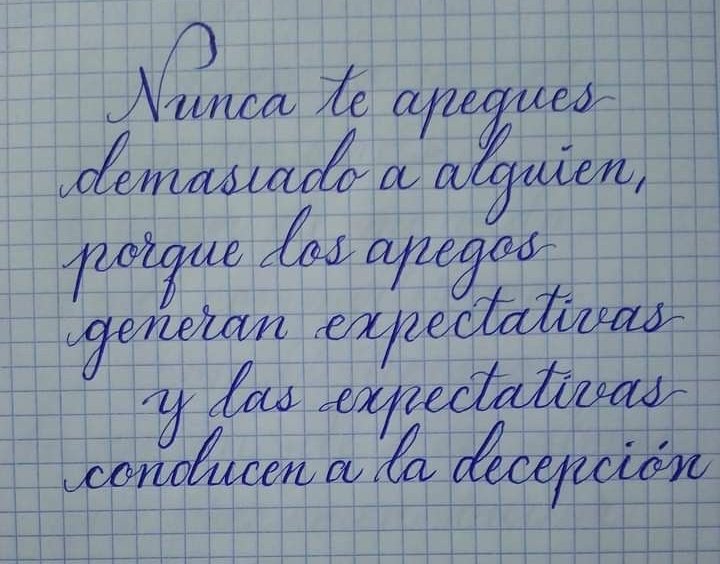 Nunca te apegues
demasiado a alguien,
porque los apegos
generan expectativas
y las expectativas
conducen a la decepción